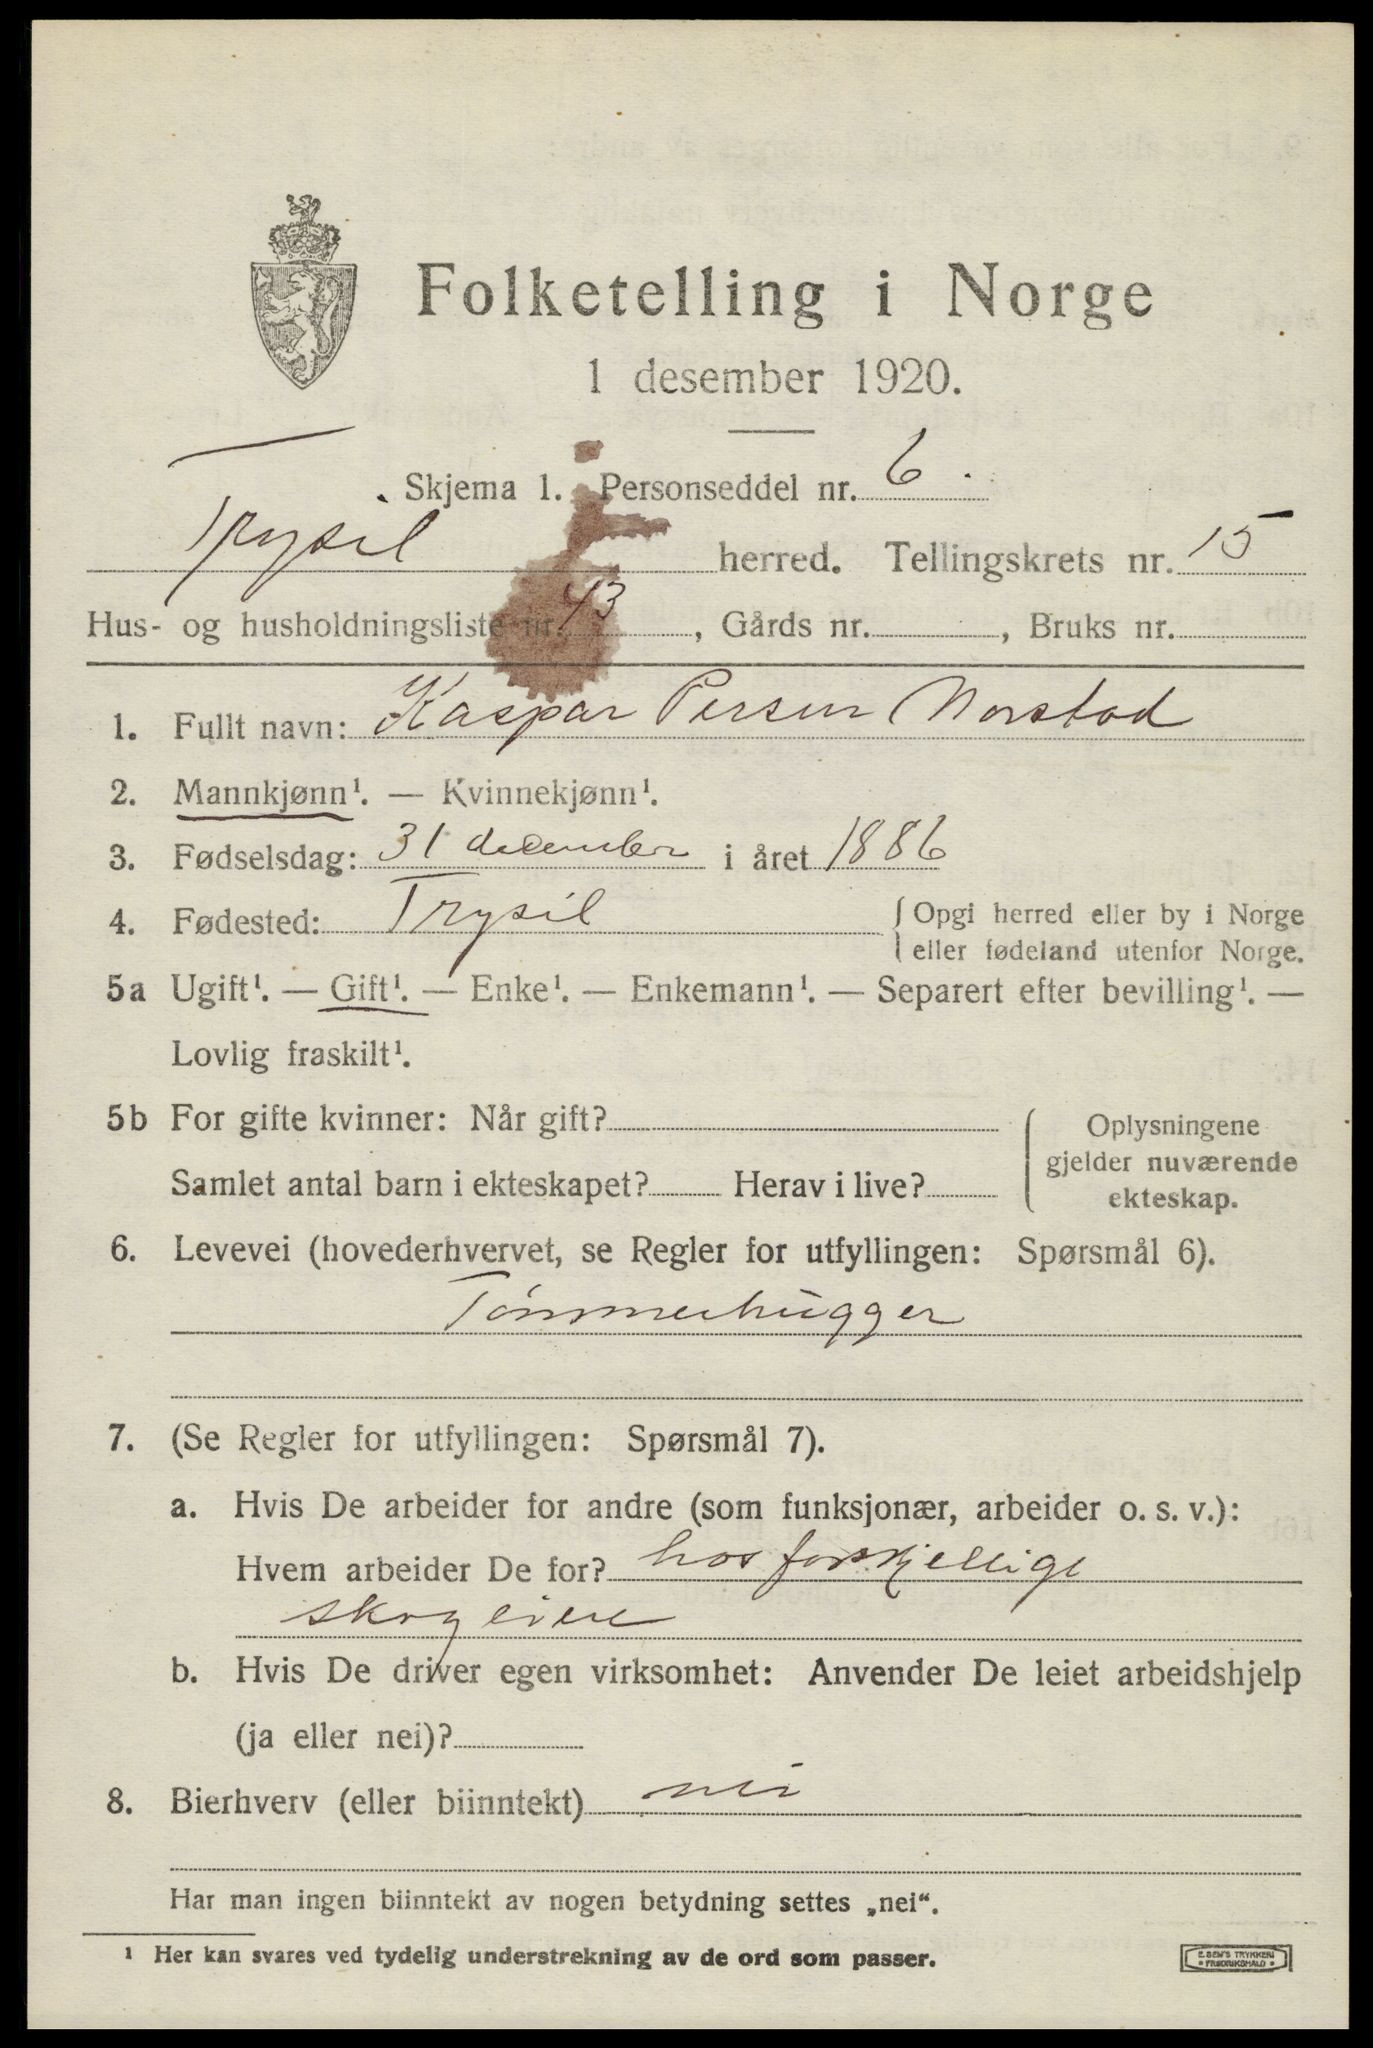 Folketelling i Norge
1 desember 1920.
Skjema 1. Personseddel nr. 6.
Trysil herred. Tellingskrets nr. 15
Hus- og husholdningsliste nr. 43, Gårds nr. , Bruks nr.
1. Fullt navn: Kaspar Persen Norstad
2. Mannkjønn¹. — Kvinnekjønn¹.
3. Fødselsdag: 31 december i året 1886
4. Fødested: Trysil { Opgi herred eller by i Norge
eller fødeland utenfor Norge.
5a Ugift¹. — Gift¹. — Enke¹. — Enkemann¹. — Separert efter bevilling¹. —
Lovlig fraskilt¹.
5b For gifte kvinner: Når gift?
Samlet antal barn i ekteskapet? Herav i live?
Oplysningene
gjelder nuværende
ekteskap.
6. Levevei (hovederhvervet, se Regler for utfyllingen: Spørsmål 6).
Tømmerhugger
7. (Se Regler for utfyllingen: Spørsmål 7).
a. Hvis De arbeider for andre (som funksjonær, arbeider o. s. v.):
Hvem arbeider De for? hos forskjellige
skogeiere
b. Hvis De driver egen virksomhet: Anvender De leiet arbeidshjelp
(ja eller nei)?
8. Bierhverv (eller biinntekt) nei
Har man ingen biinntekt av nogen betydning settes „nei“.
¹ Her kan svares ved tydelig understrekning av de ord som passer.
E. SEM'S TRYKKERI
• FREDRIKSHALD •